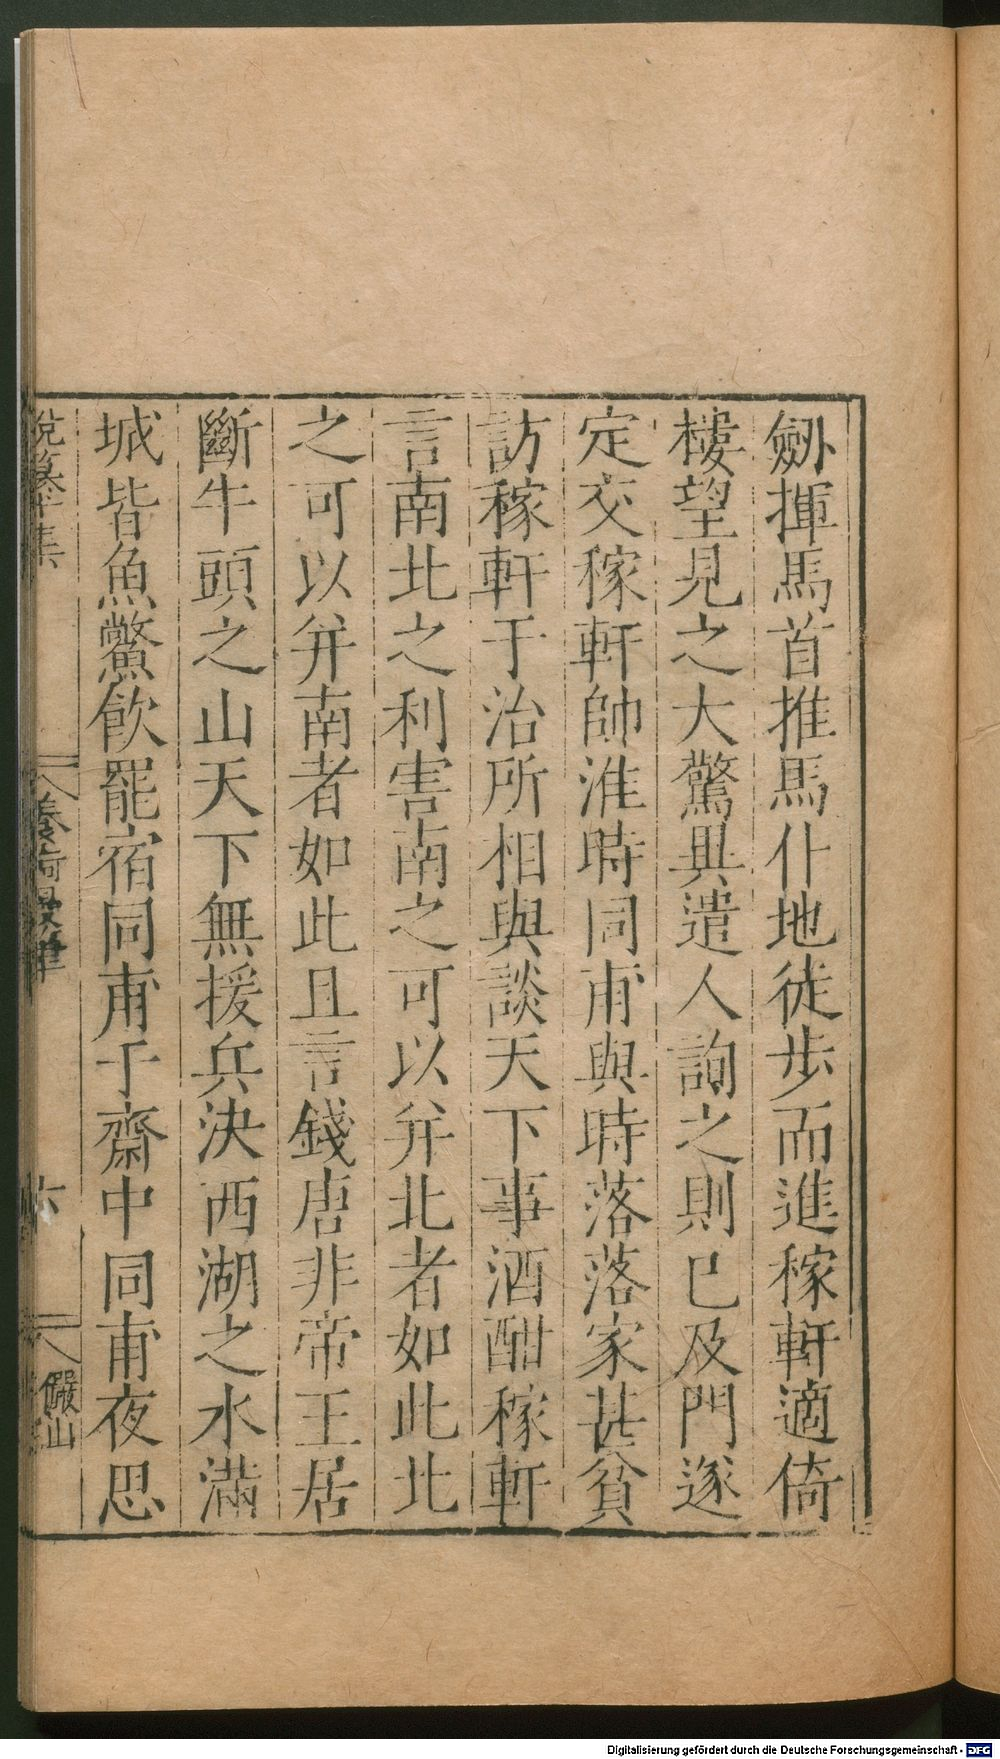 劔揮馬首推馬仆地徒步而進稼軒適倚
樓望見之大驚異遣人詢之則已及門遂
定交稼軒帥淮時同甫與時落落家甚貧
訪稼軒于治所相與談天下事酒酣稼軒
言南北之利害南之可以并北者如此北
之可以并南者如此且言錢唐非帝王居
斷牛頭之山天下無援兵決西湖之水滿
城皆魚鱉飲罷宿同甫于齋中同甫夜思
六
儼山
Digitalisierung gefördert durch die Deutsche Forschungsgemeinschaft - DFG